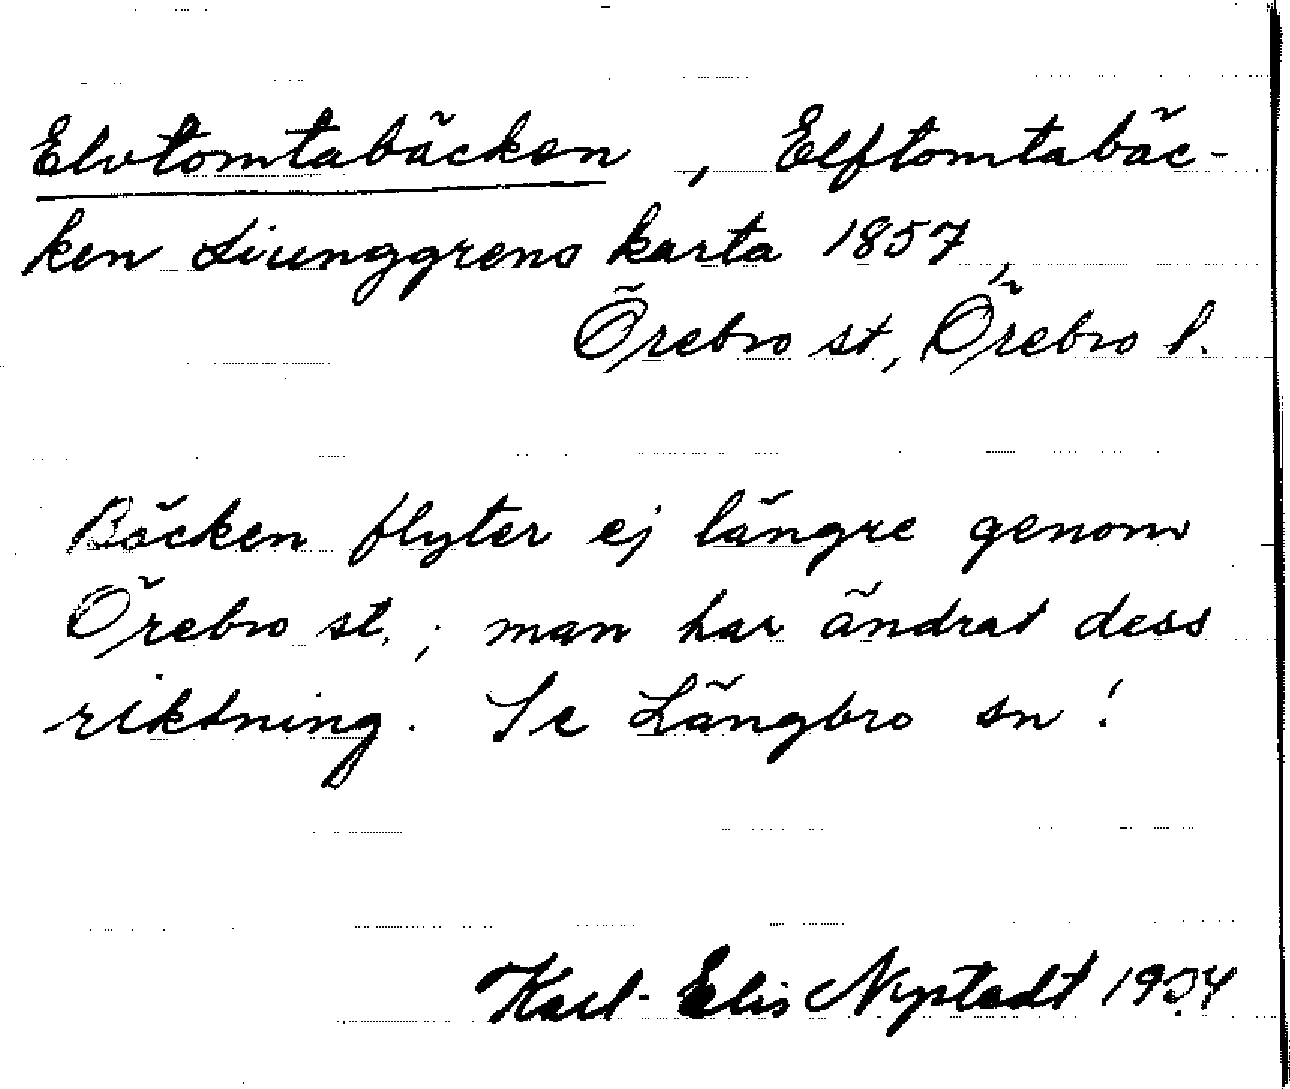 Elvtomtabäcken, Elftomtabäc-
ken Liunggrens karta 1857,
Örebro st, Örebro l.
Bäcken flyter ej längre genom
Örebro st.; man har ändrat dess
riktning. Se Längbro sn!
Karl-Elis Nystadt 1934